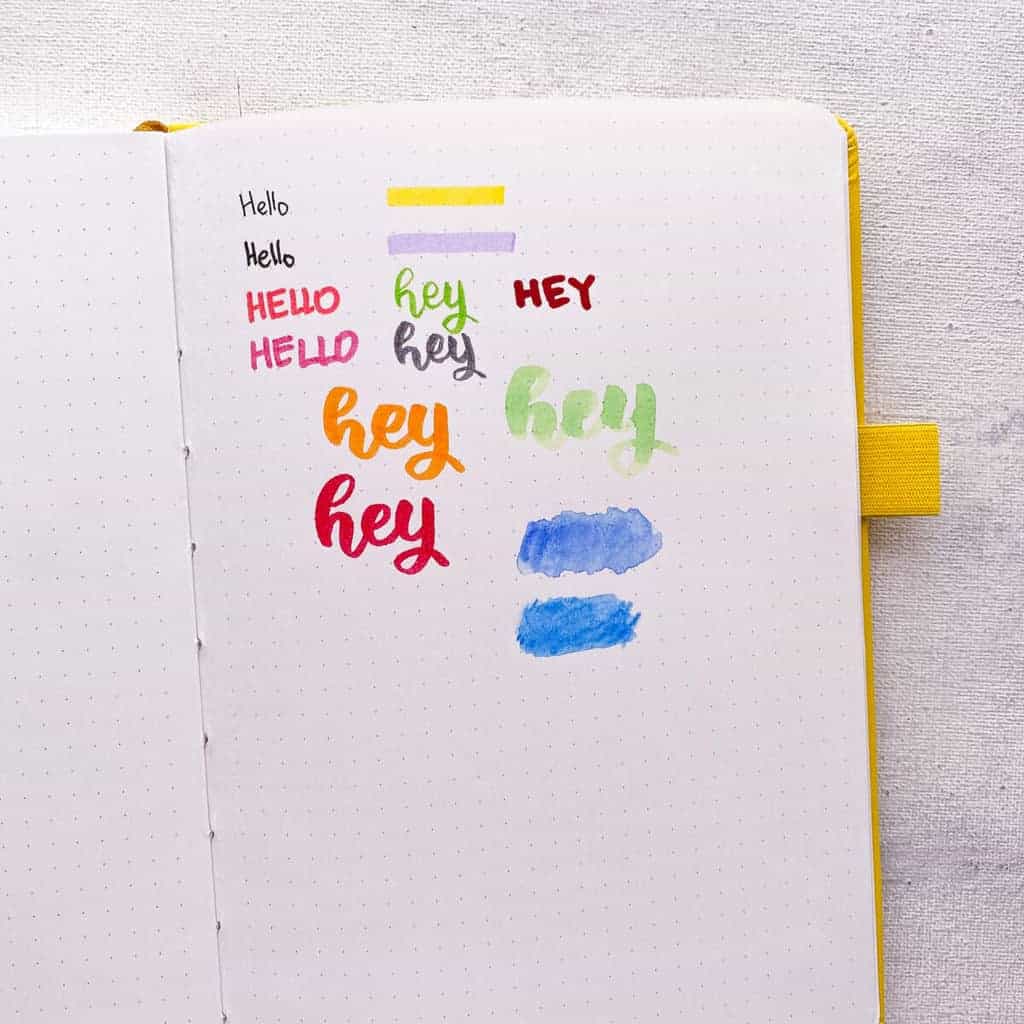 Hello
Hello
HELLO hey HEY
HELLO hey
hey hey
hey